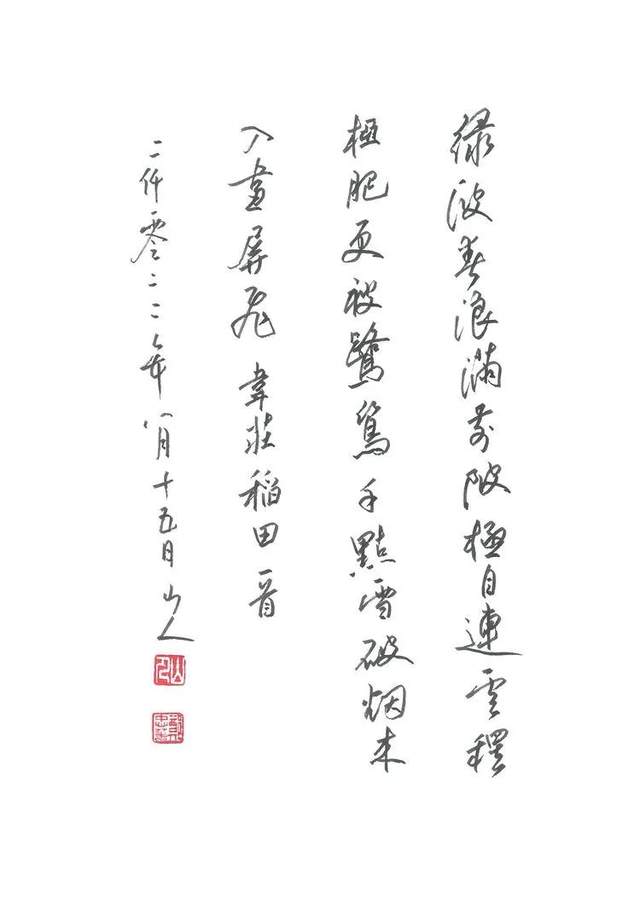 綠波春浪滿前陂極目連雲䆉
稏肥更被鷺鷥千點雪破烟来
入畫屏飛 韋莊稻田一首
二仟零二二年八月十五日山人
山人